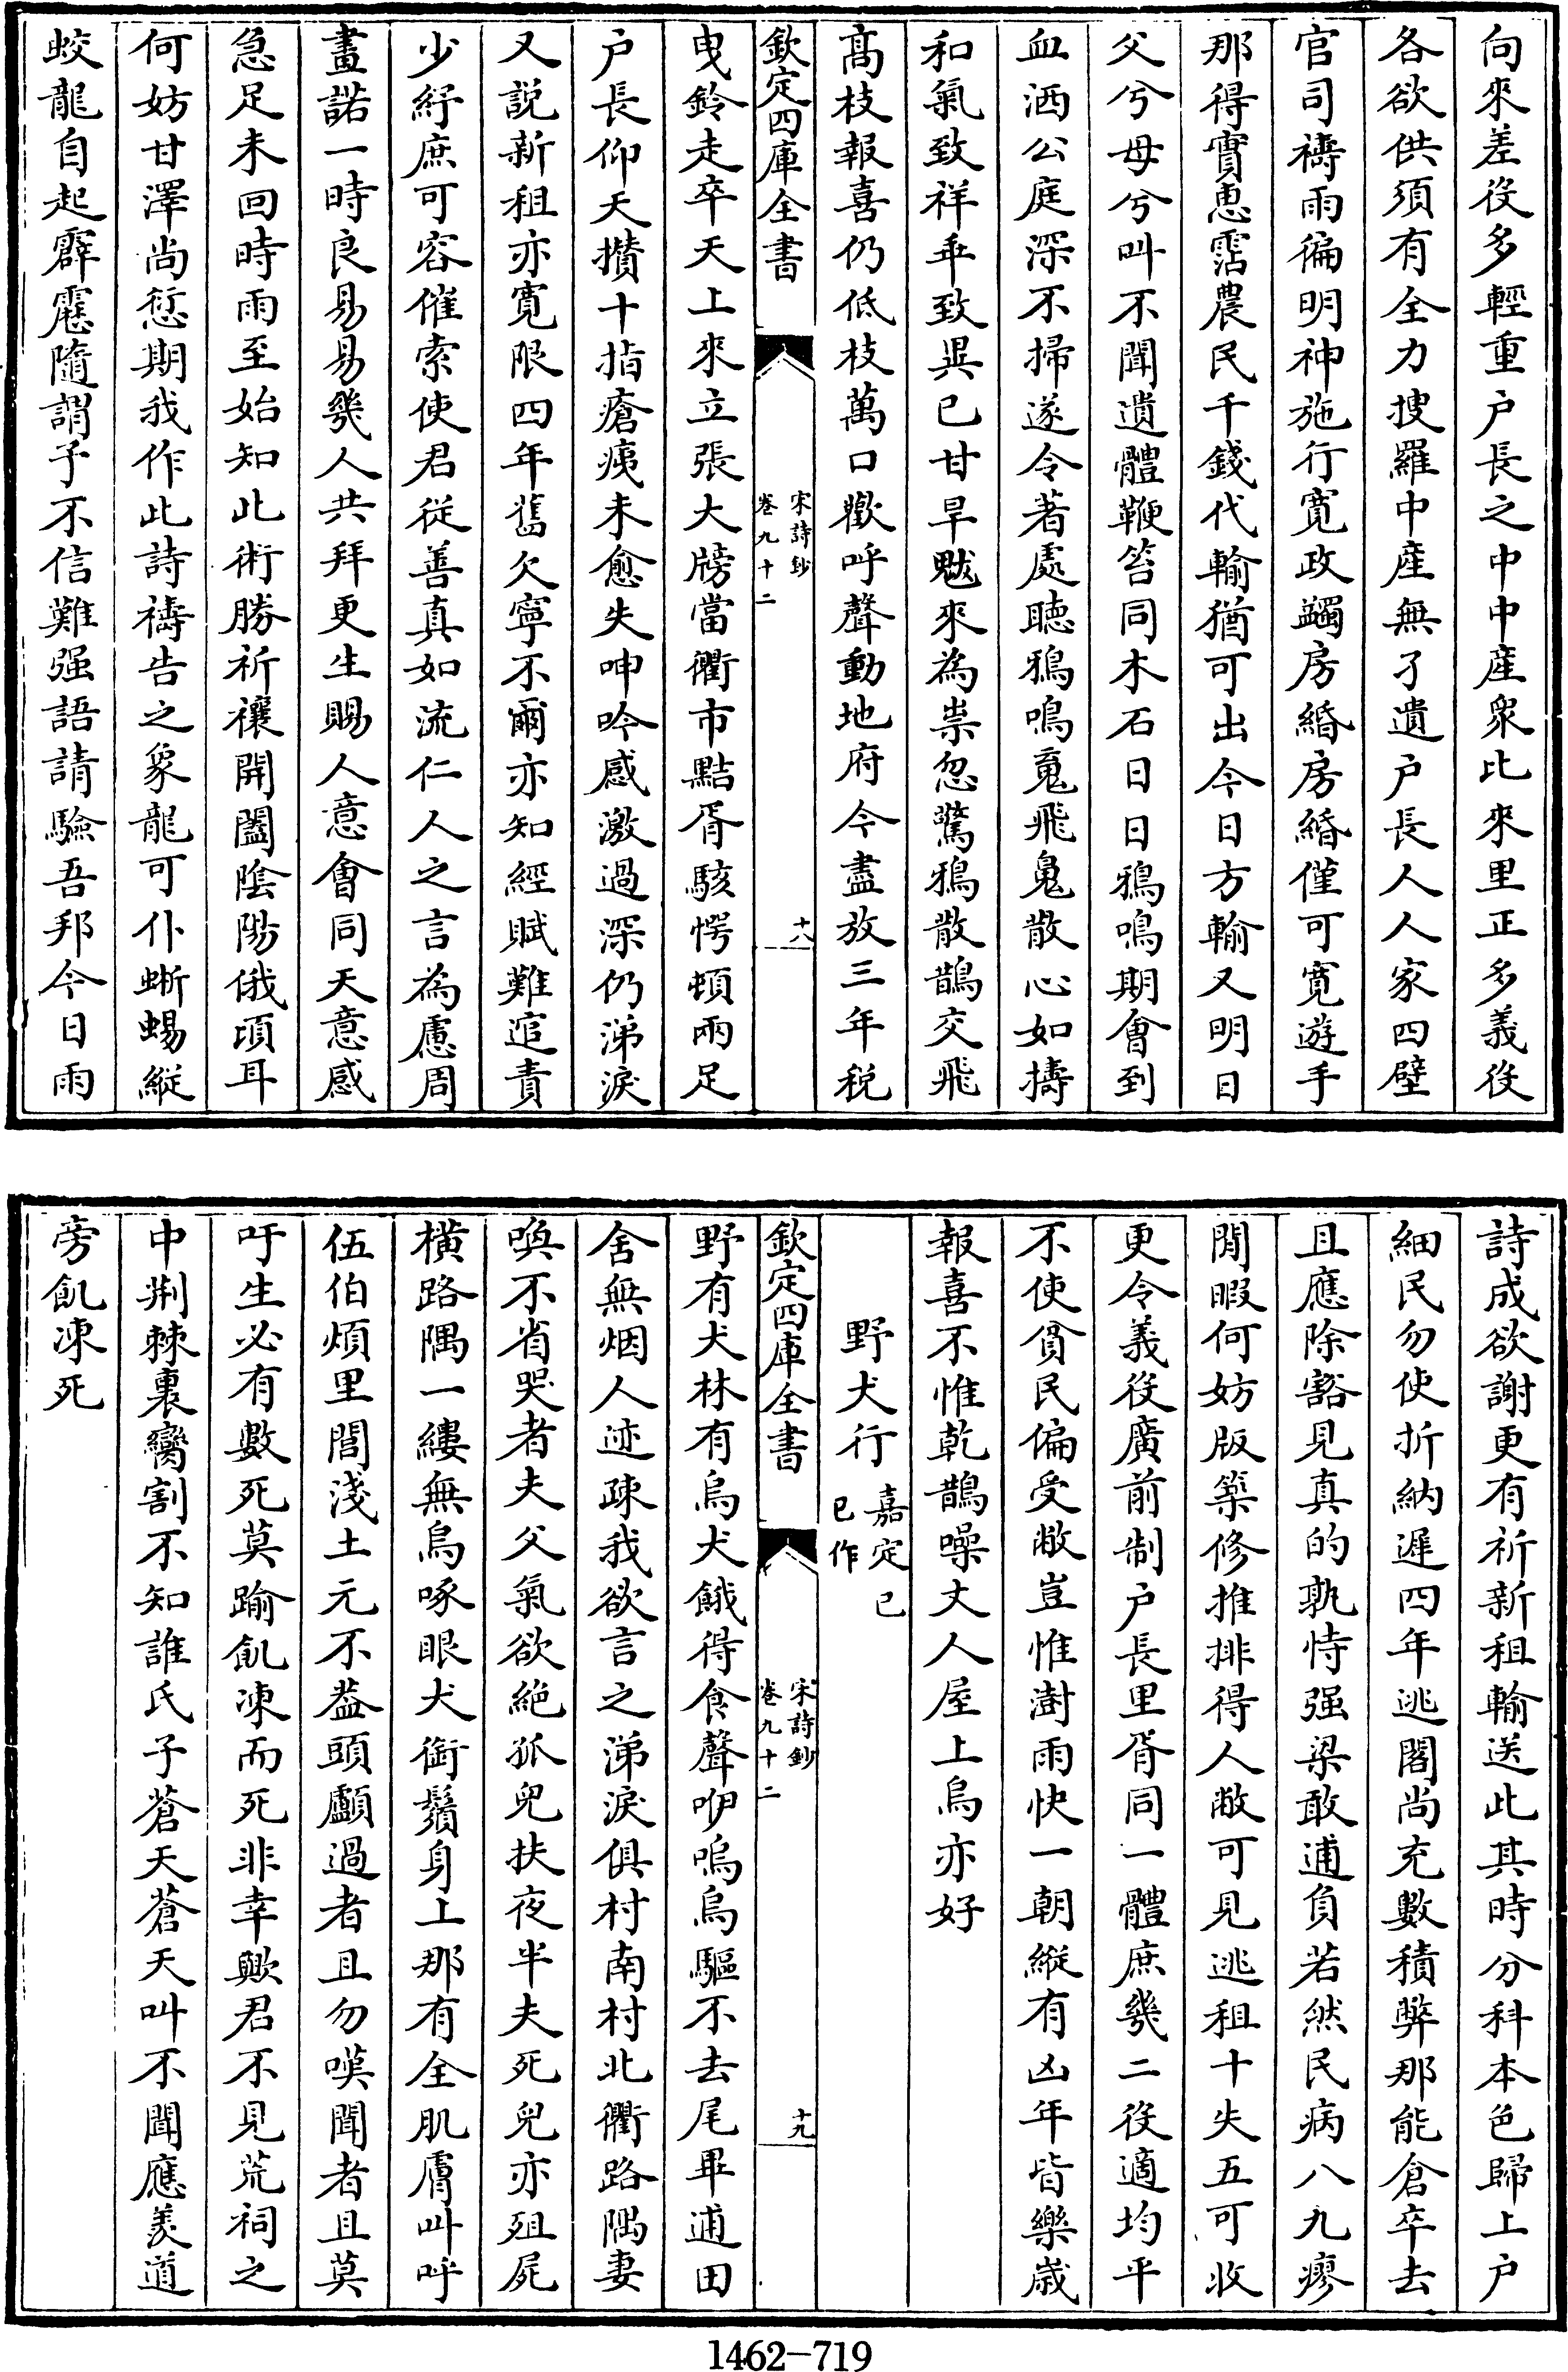 向來差役多輕重户長之中中産衆比來里正多義役
各欲供須有全力搜羅中産無孑遺户長人人家四壁
官司禱雨徧明神施行寛政蠲房緡房緡僅可寛遊手
那得實恵霑農民千錢代輸猶可出今日方輸又明日
父兮母兮叫不聞遺體鞭笞同木石日日鴉鳴期會到
血洒公庭深不掃遂令著處聴鴉鳴䰟飛䰟散心如擣
和氣致祥乖致異已甘旱魃來為祟忽驚鴉散鵲交飛
髙枝報喜仍低枝萬口歡呼聲動地府今盡放三年税
欽定四庫全書
宋詩鈔
卷九十二
十八
曵鈴走卒天上來立張大牓當衢市點胥駭愕頓兩足
户長仰天攢十指瘡痍未愈失呻吟感激過深仍涕淚
又説新租亦寛限四年舊欠寧不爾亦知經賦難逭責
少紓庶可容催索使君従善真如流仁人之言為慮周
畫諾一時良易易幾人共拜更生賜人意會同天意感
急足未回時雨至始知此術勝祈禳開闔陰陽俄頃耳
何妨甘澤尚愆期我作此詩禱告之象龍可仆蜥蜴縦
蛟龍自起霹靂隨謂予不信難强語請驗吾邦今日雨
詩成欲謝更有祈新租輸送此其時分科本色歸上户
細民勿使折納遲四年逃閣尚充數積弊那能倉卒去
且應除豁見真的孰恃强梁敢逋負若然民病八九瘳
閒暇何妨版築修推排得人敝可見逃租十失五可收
更令義役廣前制户長里胥同一體庶幾二役適均平
不使貧民偏受敝豈惟澍雨快一朝縦有凶年皆樂歲
報喜不惟乾鵲噪丈人屋上烏亦好
野犬行 嘉定己
已作
欽定四庫全書
宋詩鈔
卷九十二
十九
野有犬林有烏犬餓得食聲咿嗚烏驅不去尾畢逋田
舍無烟人迹疎我欲言之涕淚俱村南村北衢路隅妻
喚不省哭者夫父氣欲絶孤兒扶夜半夫死兒亦殂屍
横路隅一縷無烏啄眼犬銜鬚身上那有全肌膚叫呼
伍伯煩里閭淺土元不葢頭顱過者且勿嘆聞者且莫
吁生必有數死莫踰飢凍而死非幸歟君不見荒祠之
中荆棘裏臠割不知誰氏子蒼天蒼天叫不聞應羨道
旁飢凍死
1462-719